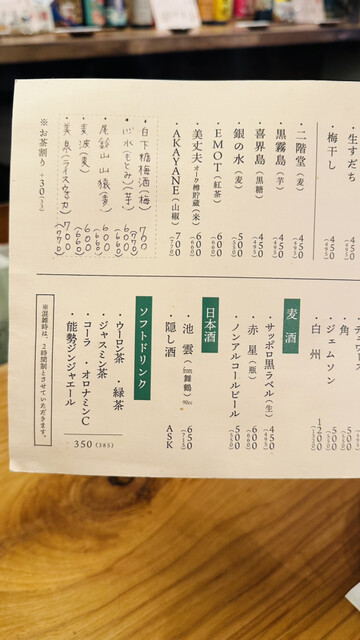 ・生すだち
・梅干し
・二階堂(麦) 450(495)
・黒霧島(芋) 450(495)
・喜界島(黒糖) 450(495)
・銀の水(麦) 500(550)
・EMOT(紅茶) 600(660)
・美丈夫 オーク樽貯蔵(米) 600(660)
・AKAYANE(山椒) 700(770)
・白下糖梅酒(梅) 700(770)
・心水(もとみ)(芋) 600(660)
・尾鈴山山猿(麦) 600(660)
・麦波(麦) 600(660)
700(770)
※お茶割り +30(33)
・角 500(550)
・ジェムソン 500(550)
・白州 1200(1320)
麦酒
・サッポロ黒ラベル(生) 450(495)
・赤星(瓶) 600(660)
・ノンアルコールビール 500(550)
日本酒
・池雲(from舞鶴) 90cc 650(715)
・隠し酒 ASK
ソフトドリンク
・ウーロン茶 ・緑茶
・ジャスミン茶
・コーラ ・オロナミンC
・能勢ジンジャエール
350(385)
※混雑時は、2時間制とさせていただきます。